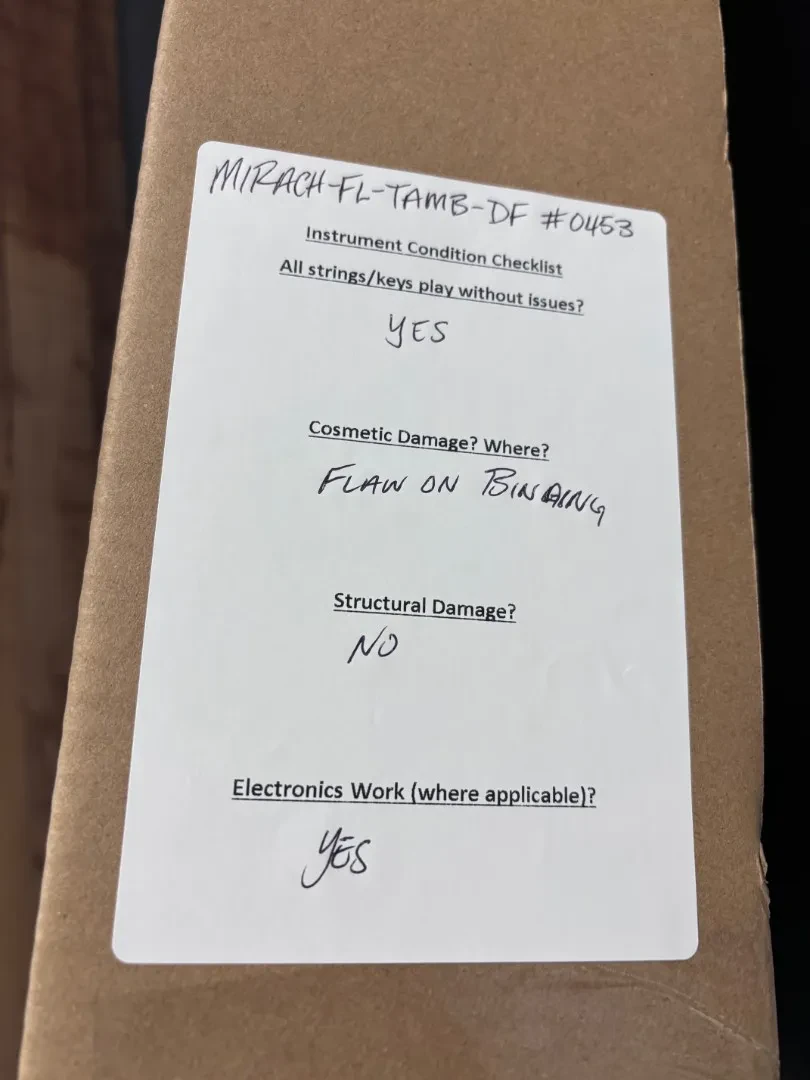 MIRACH-FL-TAMB-DF #0453
Instrument Condition Checklist
All strings/keys play without issues?
YES
Cosmetic Damage? Where?
FLAW ON BINDING
Structural Damage?
NO
Electronics Work (where applicable)?
YES